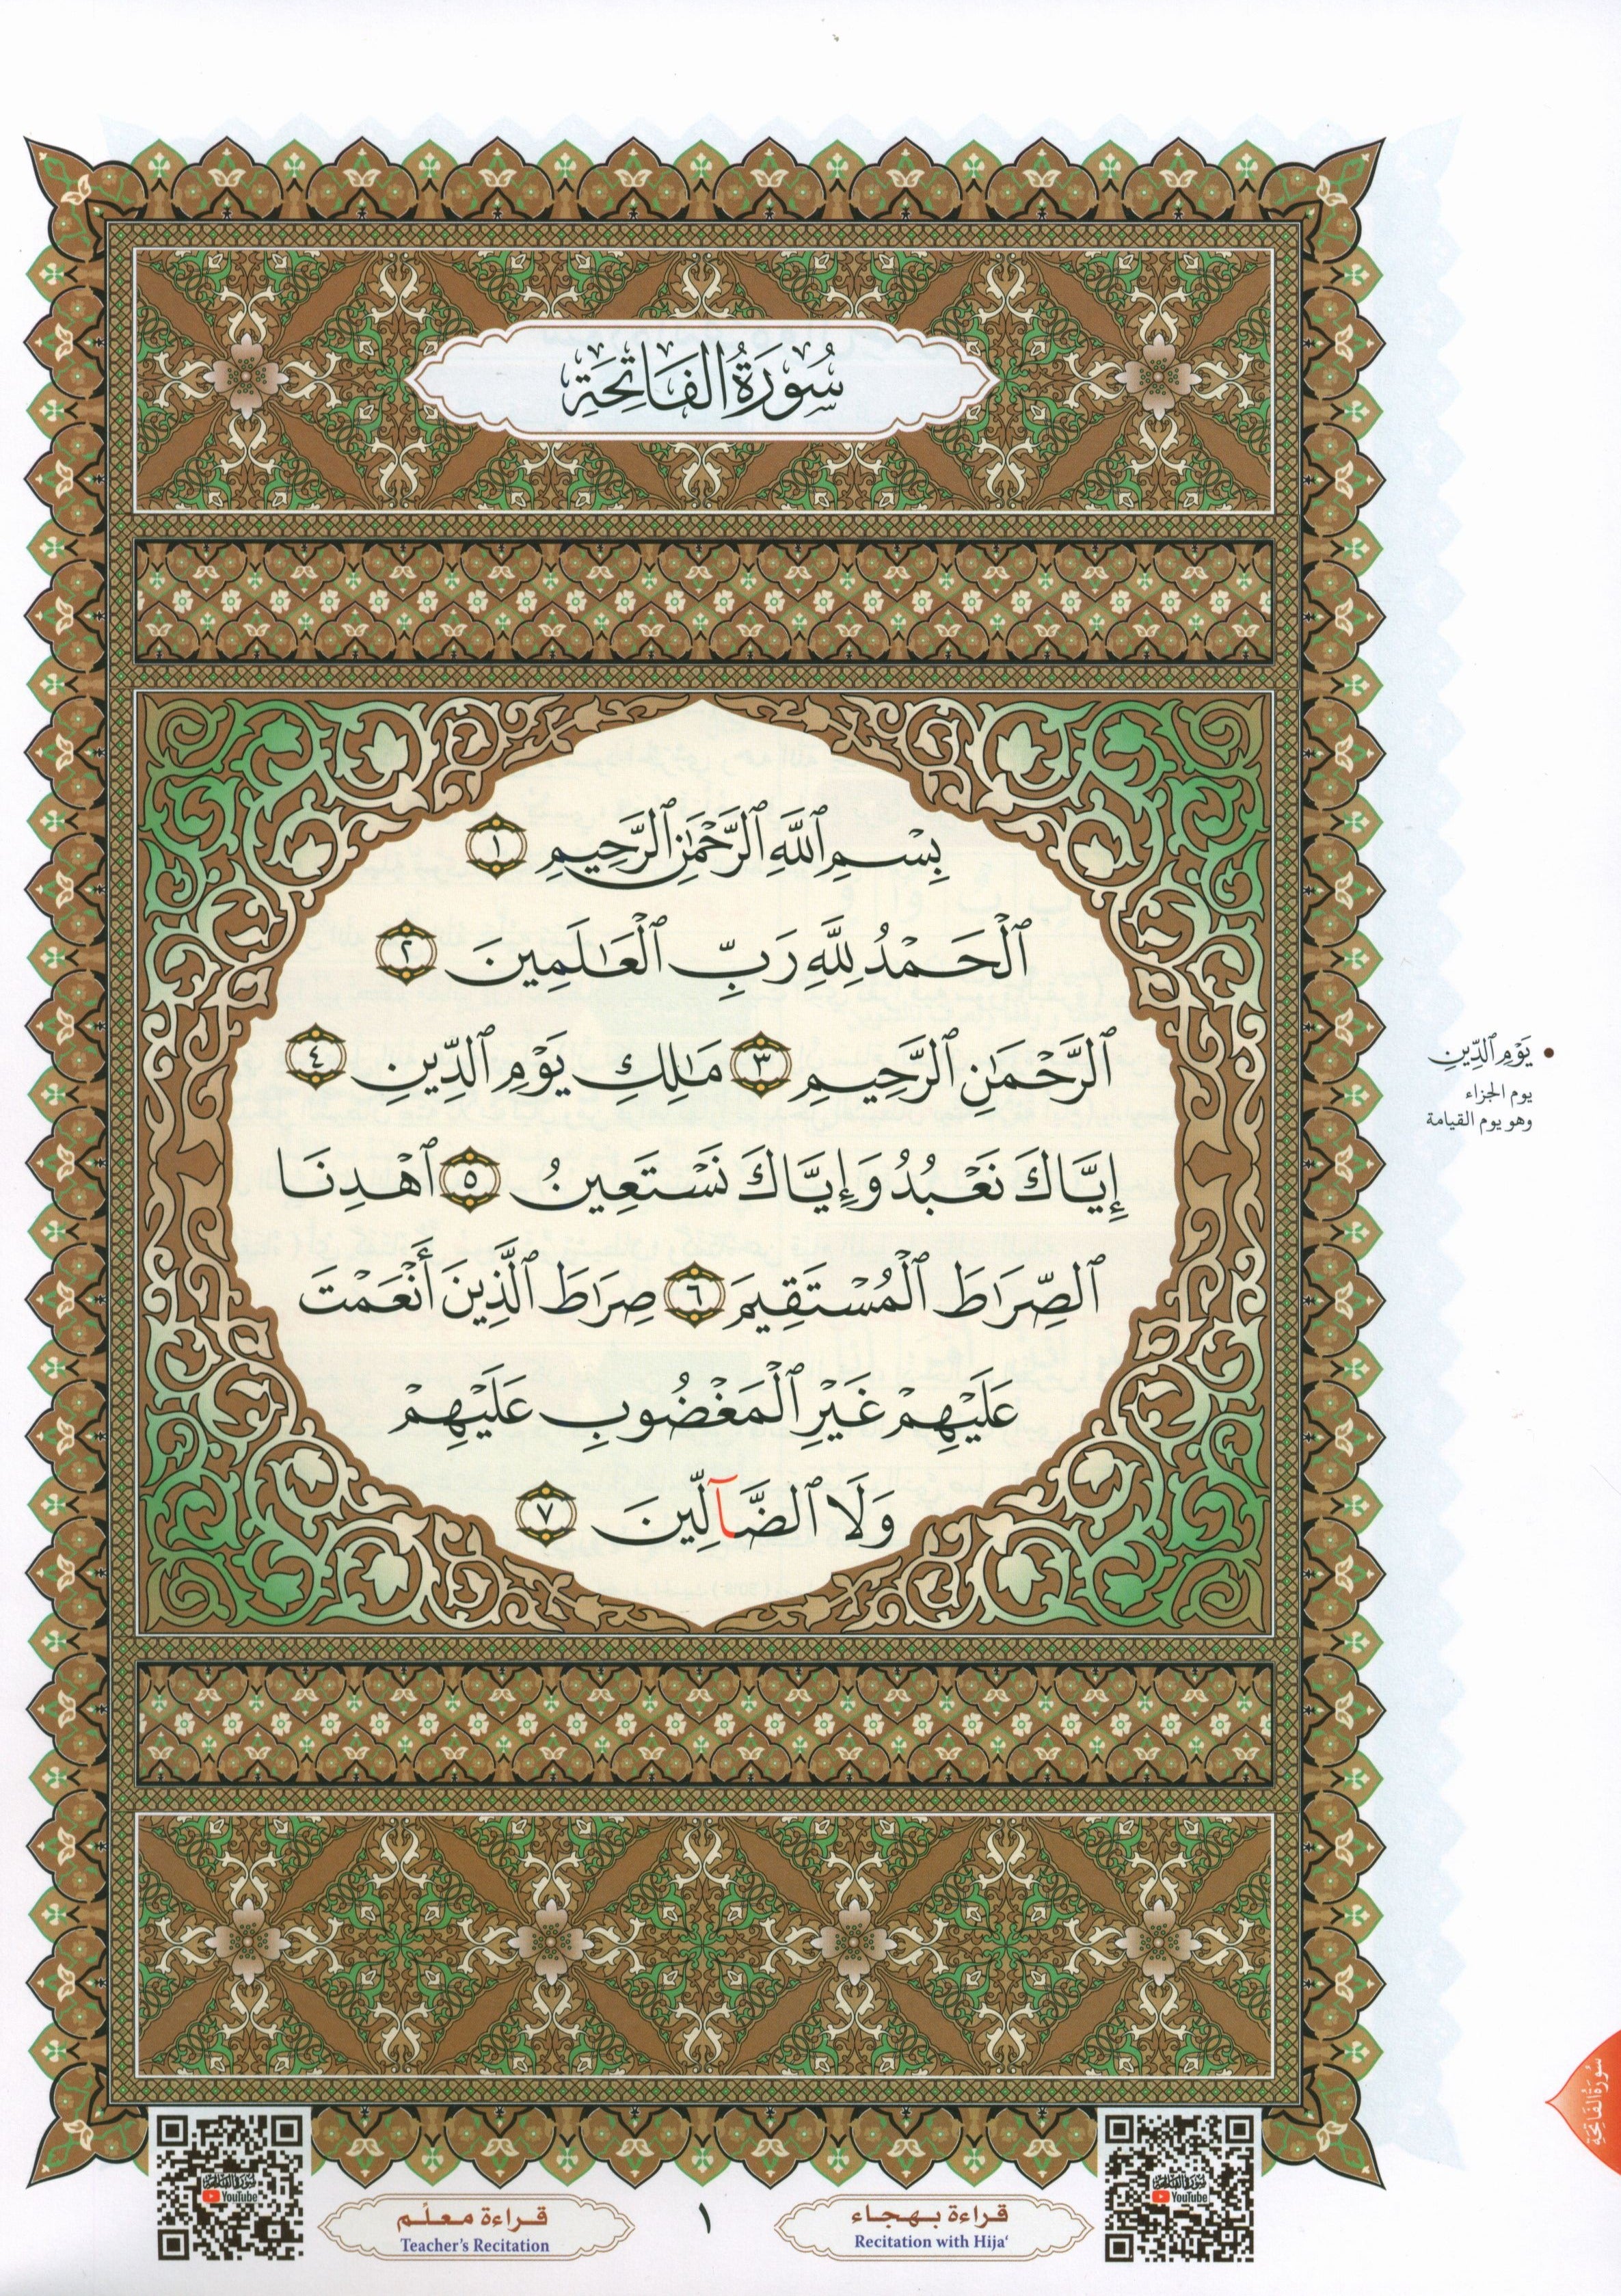 سُورَةُ الفَاتِحَةِ
بِسْمِ ٱللَّهِ ٱلرَّحْمَٰنِ ٱلرَّحِيمِ ١
ٱلْحَمْدُ لِلَّهِ رَبِّ ٱلْعَٰلَمِينَ ٢
ٱلرَّحْمَٰنِ ٱلرَّحِيمِ ٣ مَٰلِكِ يَوْمِ ٱلدِّينِ ٤
إِيَّاكَ نَعْبُدُ وَإِيَّاكَ نَسْتَعِينُ ٥ ٱهْدِنَا
ٱلصِّرَٰطَ ٱلْمُسْتَقِيمَ ٦ صِرَٰطَ ٱلَّذِينَ أَنْعَمْتَ
عَلَيْهِمْ غَيْرِ ٱلْمَغْضُوبِ عَلَيْهِمْ
وَلَا ٱلضَّآلِّينَ ٧
• يَوْمِ ٱلدِّينِ
يوم الجزاء
وهو يوم القيامة
سُورَةُ الفَاتِحَةِ
سورة الفاتحة
YouTube
قراءة بهجاء
Recitation with Hija‘
١
قراءة معلّم
Teacher's Recitation
سورة الفاتحة
YouTube